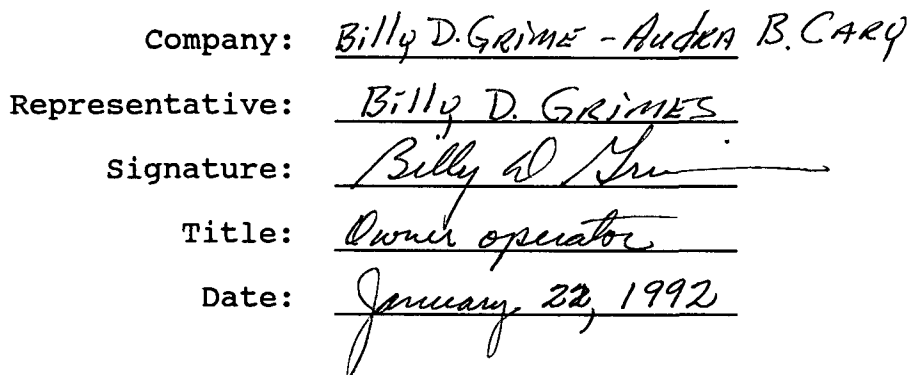 Company: Billy D. GRIME - AudRA B. CARY
Representative: Billy D. GRIMES
Signature: Billy D Grimes
Title: Owner operator
Date: January 22, 1992